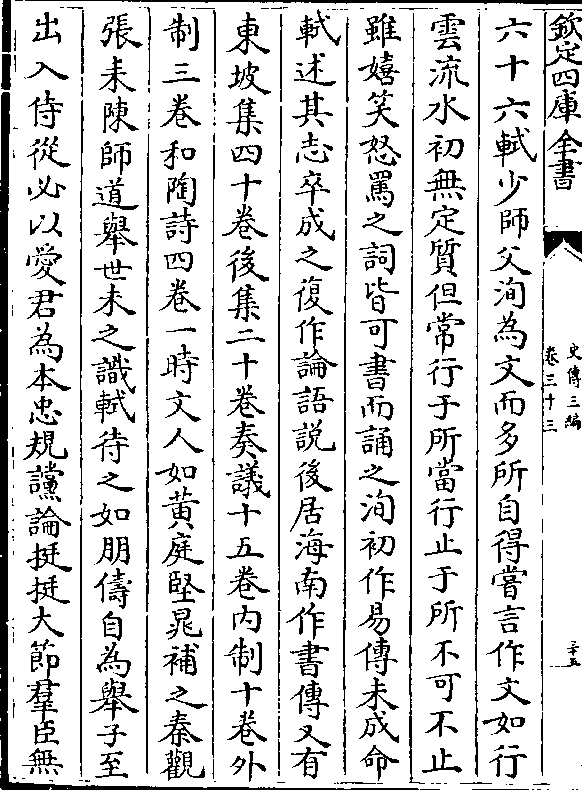 欽定四庫全書
史傳三編
卷三十三
二十五
六十六軾少師父洵為文而多所自得嘗言作文如行
雲流水初無定質但常行于所當行止于所不可不止
雖嬉笑怒罵之詞皆可書而誦之洵初作易傳未成命
軾述其志卒成之復作論語說後居海南作書傳又有
東坡集四十卷後集二十卷奏議十五卷內制十卷外
制三卷和陶詩四卷一時文人如黃庭堅晁補之秦觀
張耒陳師道舉世未之識軾待之如朋儔自為舉子至
出入侍從必以愛君為本忠規讜論挺挺大節羣臣無